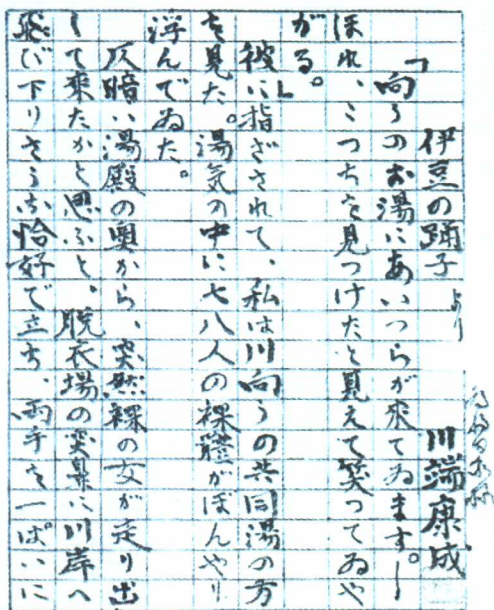 伊豆の踊子 より
川端康成
「向うのお湯にあいつらが来てゐます。――
ほれ、こつちを見つけたと見えて笑つてゐや
がる。」
彼に指ざされて、私は川向うの共同湯の方
を見た。湯気の中に七八人の裸體がぼんやり
浮んでゐた。
仄暗い湯殿の奥から、突然裸の女が走り出
して来たかと思ふと、脱衣場の突鼻に川岸へ
飛び下りさうな恰好で立ち、両手を一ぱいに